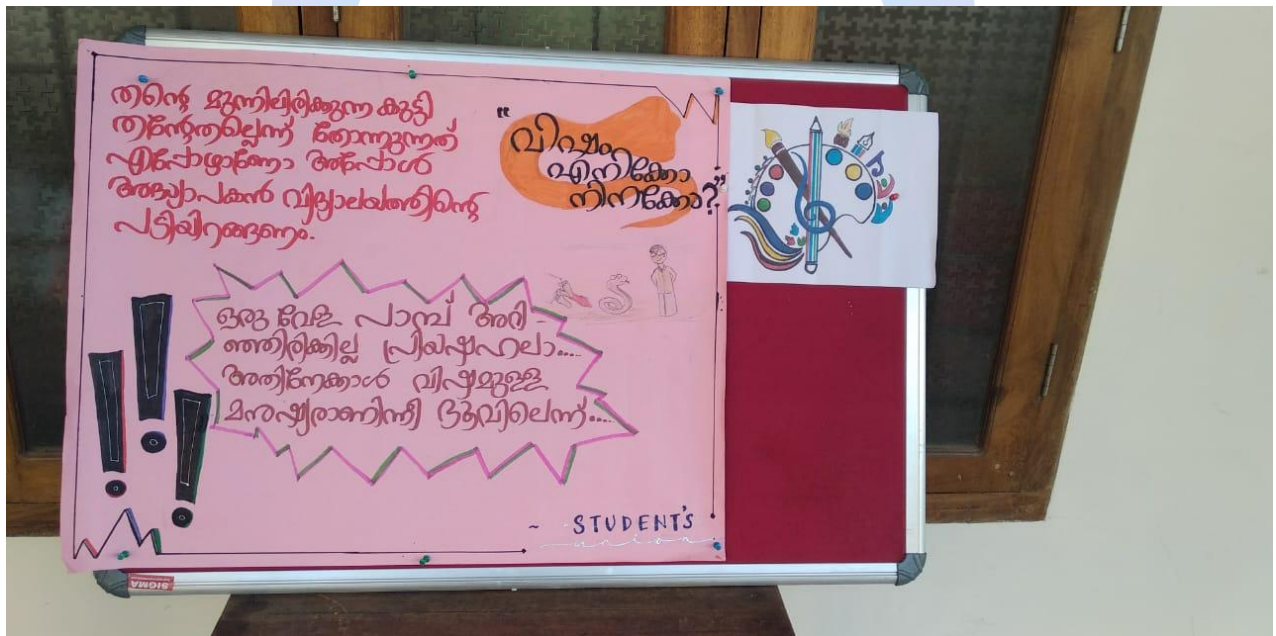 തന്റെ മുന്നിലിരിക്കുന്ന കുട്ടി
തന്റേതല്ലെന്ന് തോന്നുന്നത്
എപ്പോഴാണോ അപ്പോൾ
അദ്ധ്യാപകൻ വിദ്യാലയത്തിന്റെ
പടിയിറങ്ങണം.
"വിഷം
എനിക്കോ
നിനക്കോ?"
ഒരു വേള പാമ്പ് അറി-
ഞ്ഞിരിക്കില്ല പ്രിയഷഹലാ....
അതിനേക്കാൾ വിഷമുള്ള
മനുഷ്യരാണിന്നീ ഭൂവിലെന്ന്....
~ STUDENT'S
union
SIGMA